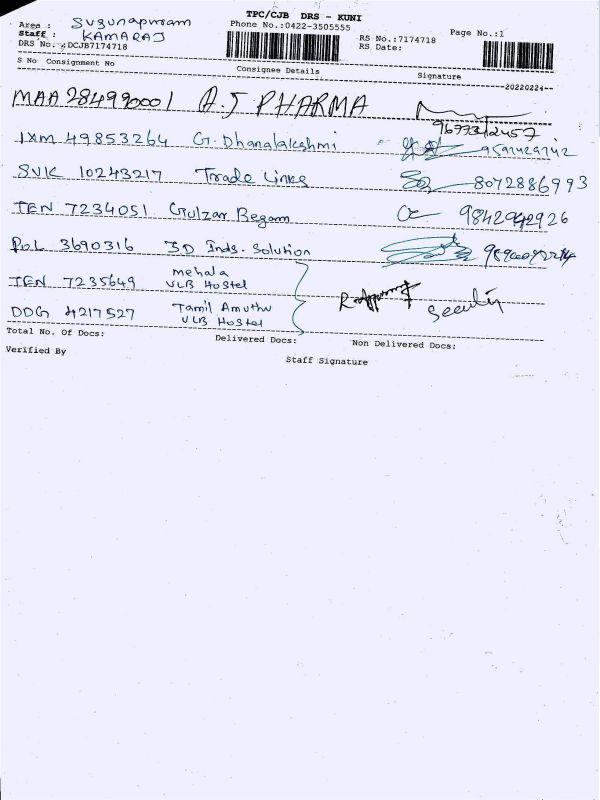 TPC/CJB DRS - KUNI
Area : Sugunapuram
Phone No.:0422-3505555
Page No.:1
Staff : KAMARAJ
RS No.:7174718
DRS No.:DCJB7174718
RS Date:
S No Consignment No Consignee Details Signature
20220224
MAA 284990001 A.J PHARMA
9677312457
IXM 49853264 G. Dhanalakshmi
SVK 10243217 Trade Links 8072886993
TEN 7234051 Gulzar Begam 9842942926
POL 3690316 3D Inds. Solution
TEN 7235649 mehala
VLB Hostel
DDG 4217527 Tamil Amuthu
VLB Hostel
Security
Total No. Of Docs: Delivered Docs: Non Delivered Docs:
Verified By Staff Signature